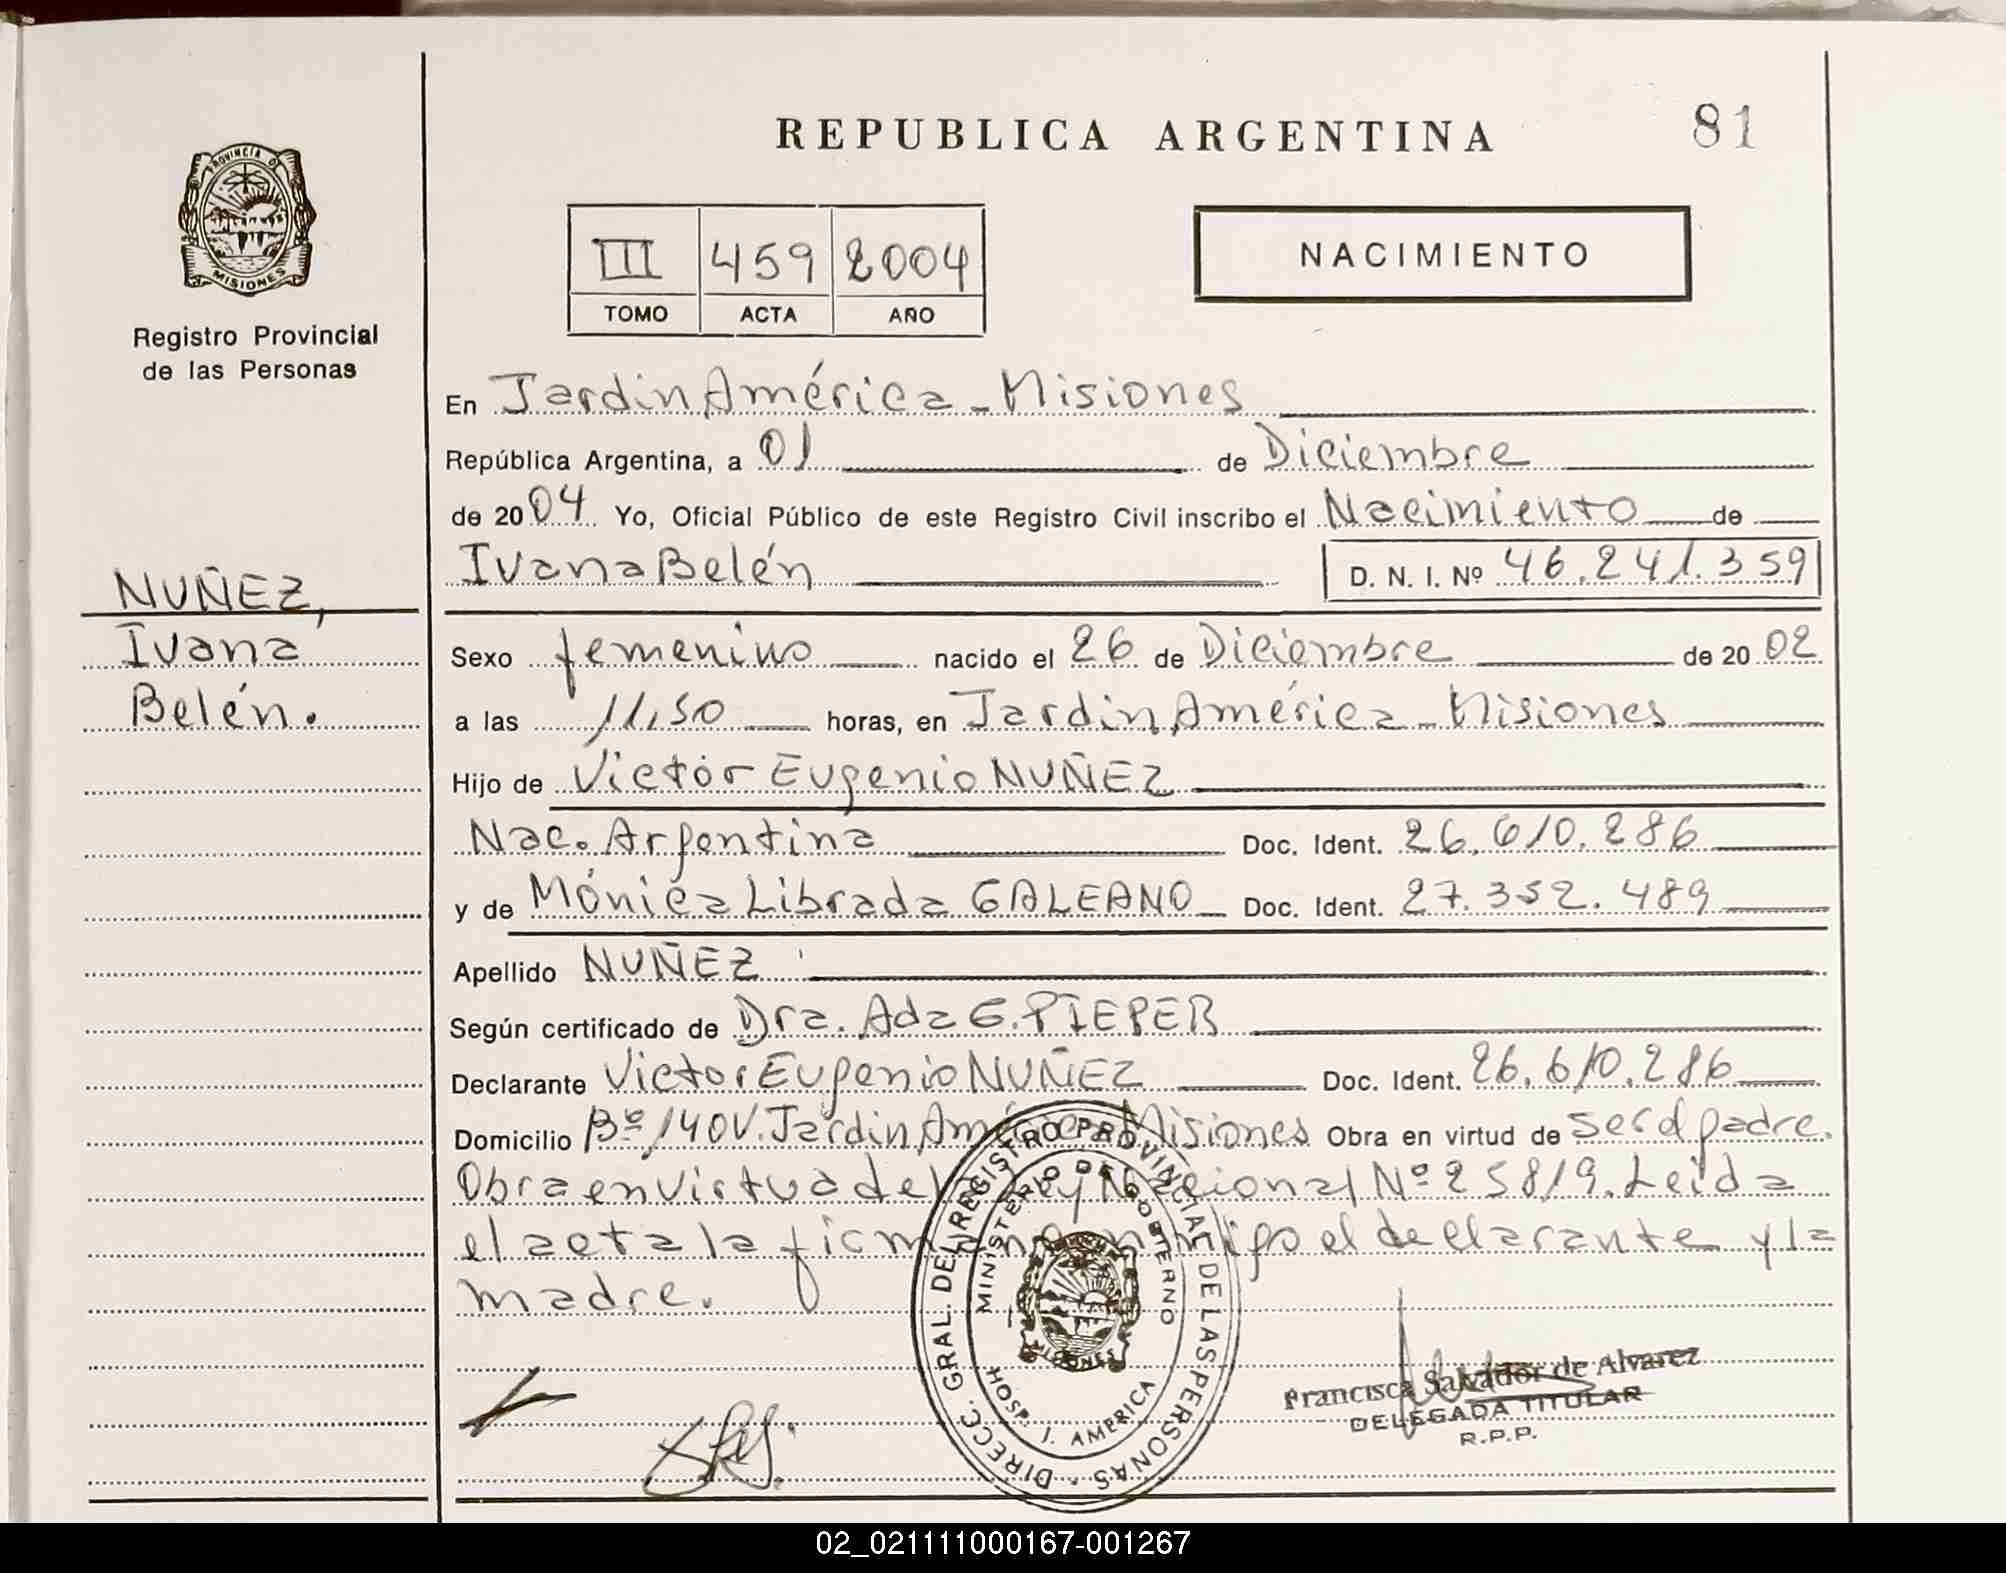 REPUBLICA ARGENTINA
81
PROVINCIA D
MISIONES
Registro Provincial
de las Personas
III 459 2004
TOMO ACTA AÑO
NACIMIENTO
NUÑEZ,
Ivana
Belén.
En Jardin América - Misiones
República Argentina, a 01 de Diciembre
de 2004 Yo, Oficial Público de este Registro Civil inscribo el Nacimiento de
Ivana Belén D. N. I. Nº 46.241.359
Sexo femenino nacido el 26 de Diciembre de 2002
a las 11,50 horas, en Jardin América - Misiones
Hijo de Victor Eugenio NUÑEZ
Nac. Argentina Doc. Ident. 26.610.286
y de Mónica Librada GALEANO Doc. Ident. 27.352.489
Apellido NUÑEZ
Según certificado de Dra. Ada G. PIEPER
Declarante Victor Eugenio NUÑEZ Doc. Ident. 26.610.286
Domicilio Bº 140V. Jardin América Misiones Obra en virtud de ser el padre.
Obra en virtud de la Ley Nacional Nº 25819. Leida
el acta la firman conmigo el declarante y la
madre.
DIRECC. GRAL. DEL REGISTRO PROVINCIAL DE LAS PERSONAS
MINISTERIO DE GOBIERNO
MISIONES
HOSP. J. AMERICA
Francisca Salvador de Alvarez
DELEGADA TITULAR
R.P.P.
02_021111000167-001267